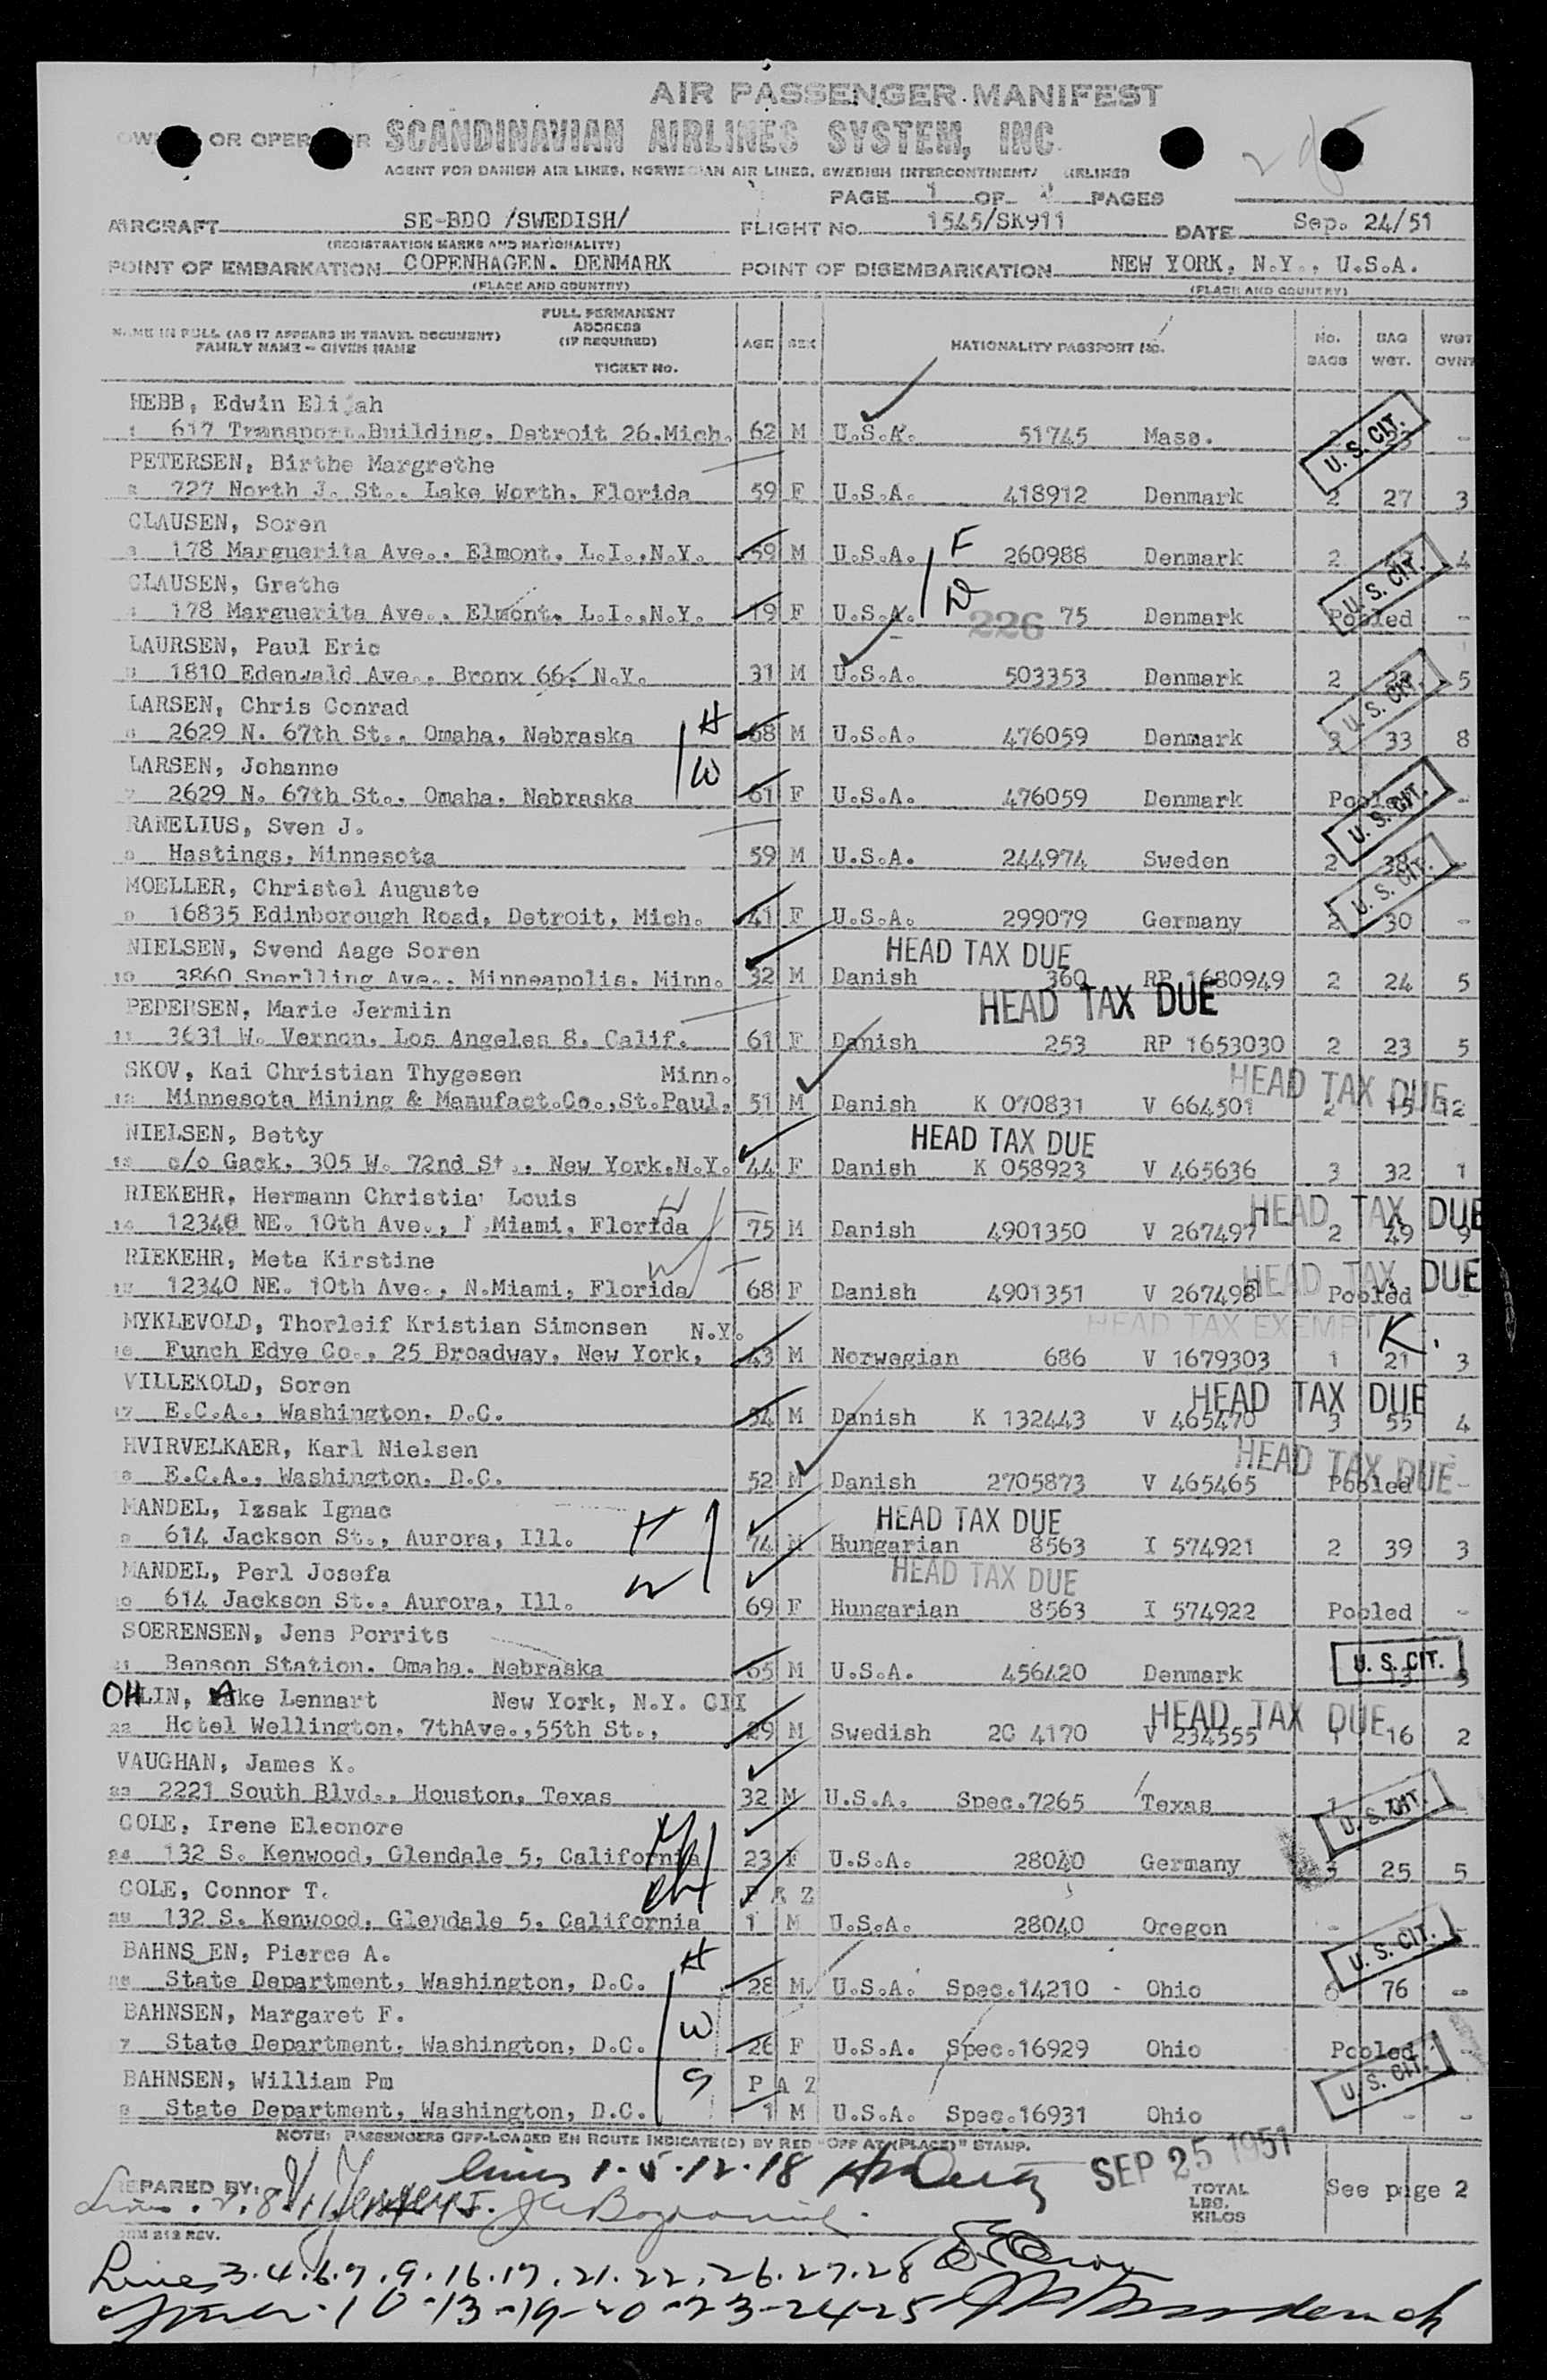 AIR PASSENGER MANIFEST
OWNER OR OPERATOR SCANDINAVIAN AIRLINES SYSTEM, INC.
AGENT FOR DANISH AIR LINES, NORWEGIAN AIR LINES, SWEDISH INTERCONTINENTAL AIRLINES
PAGE 1 OF 2 PAGES
AIRCRAFT SE-BDO /SWEDISH/ FLIGHT No. 1545/SK911 DATE Sep. 24/51
(REGISTRATION MARKS AND NATIONALITY)
POINT OF EMBARKATION COPENHAGEN. DENMARK POINT OF DISEMBARKATION NEW YORK, N.Y., U.S.A.
(PLACE AND COUNTRY) (PLACE AND COUNTRY)
NAME IN FULL (AS IT APPEARS IN TRAVEL DOCUMENT) FAMILY NAME - GIVEN NAME FULL PERMANENT ADDRESS (IF REQUIRED) TICKET No. AGE SEX NATIONALITY PASSPORT No. No. BAGS BAG WGT. WGT OVNT
HEBB, Edwin Elijah
1 617 Transport.Building, Detroit 26.Mich. 62 M U.S.A. 51745 Mass. U. S. CIT. -
PETERSEN, Birthe Margrethe
2 727 North J. St., Lake Worth, Florida 59 F U.S.A. 418912 Denmark 2 27 3
CLAUSEN, Soren
3 178 Marguerita Ave., Elmont, L.I.,N.Y. 59 M U.S.A. F 260988 Denmark 2 4
CLAUSEN, Grethe U. S. CIT.
4 178 Marguerita Ave., Elmont, L.I.,N.Y. 19 F U.S.A. D 226 75 Denmark Pooled -
LAURSEN, Paul Eric
5 1810 Edenwald Ave., Bronx 66, N.Y. 31 M U.S.A. 503353 Denmark 2 5
LARSEN, Chris Conrad H U. S. CIT.
6 2629 N. 67th St., Omaha, Nebraska 68 M U.S.A. 476059 Denmark 3 33 8
LARSEN, Johanne W
7 2629 N. 67th St., Omaha, Nebraska 61 F U.S.A. 476059 Denmark Pooled -
RANELIUS, Sven J. U. S. CIT.
8 Hastings, Minnesota 59 M U.S.A. 244974 Sweden 2 38 -
MOELLER, Christel Auguste U. S. CIT.
9 16835 Edinborough Road, Detroit, Mich. 41 F U.S.A. 299079 Germany 2 30 -
NIELSEN, Svend Aage Soren HEAD TAX DUE
10 3860 Snerlling Ave., Minneapolis, Minn. 32 M Danish 360 RP 1680949 2 24 5
PEDERSEN, Marie Jermiin HEAD TAX DUE
11 3631 W. Vernon, Los Angeles 8, Calif. 61 F Danish 253 RP 1653030 2 23 5
SKOV, Kai Christian Thygesen Minn. HEAD TAX DUE
12 Minnesota Mining & Manufact.Co.,St.Paul, 51 M Danish K 070831 V 664501 2 15 12
NIELSEN, Betty HEAD TAX DUE
13 c/o Gack, 305 W. 72nd St., New York,N.Y. 44 F Danish K 058923 V 465636 3 32 1
RIEKEHR, Hermann Christian Louis H HEAD TAX DUE
14 12340 NE. 10th Ave., N.Miami, Florida 75 M Danish 4901350 V 267497 2 49 9
RIEKEHR, Meta Kirstine W HEAD TAX DUE
15 12340 NE. 10th Ave., N.Miami, Florida 68 F Danish 4901351 V 267498 Pooled
MYKLEVOLD, Thorleif Kristian Simonsen N.Y. HEAD TAX EXEMPT K.
16 Funch Edye Co., 25 Broadway, New York, 43 M Norwegian 686 V 1679303 1 21 3
VILLEKOLD, Soren HEAD TAX DUE
17 E.C.A., Washington, D.C. 54 M Danish K 132443 V 465470 3 55 4
HVIRVELKAER, Karl Nielsen HEAD TAX DUE
18 E.C.A., Washington, D.C. 52 M Danish 2705873 V 465465 Pooled -
MANDEL, Izsak Ignac H HEAD TAX DUE
19 614 Jackson St., Aurora, Ill. 74 M Hungarian 8563 I 574921 2 39 3
MANDEL, Perl Josefa W HEAD TAX DUE
20 614 Jackson St., Aurora, Ill. 69 F Hungarian 8563 I 574922 Pooled -
SOERENSEN, Jens Porrits
21 Benson Station, Omaha, Nebraska 65 M U.S.A. 456420 Denmark U. S. CIT. 13 3
OHLIN, Ake Lennart New York, N.Y. CII HEAD TAX DUE
22 Hotel Wellington, 7thAve.,55th St., 29 M Swedish 2C 4170 V 234555 1 16 2
VAUGHAN, James K.
23 2221 South Blvd., Houston, Texas 32 M U.S.A. Spec.7265 Texas 1 U. S. CIT.
COLE, Irene Eleonore
24 132 S. Kenwood, Glendale 5, California 23 F U.S.A. 28040 Germany 3 25 5
COLE, Connor T. P A Z
25 132 S. Kenwood, Glendale 5, California 1 M U.S.A. 28040 Oregon - -
BAHNSEN, Pierce A. H U. S. CIT.
26 State Department, Washington, D.C. 28 M U.S.A. Spec.14210 - Ohio 6 76 -
BAHNSEN, Margaret F. W
27 State Department, Washington, D.C. 26 F U.S.A. Spec.16929 Ohio Pooled -
BAHNSEN, William Pm S P A Z U. S. CIT.
28 State Department, Washington, D.C. 1 M U.S.A. Spec.16931 Ohio - -
NOTE: PASSENGERS OFF-LOADED EN ROUTE INDICATE(D) BY RED "OFF AT (PLACE)" STAMP.
Lines 1-5-12-18 SEP 25 1951
PREPARED BY: TOTAL LBS. KILOS See page 2
FORM 212 REV.
Lines 3.4.6.7.9.16.17.21.22.26.27.28
10-13-19-20-23-24-25